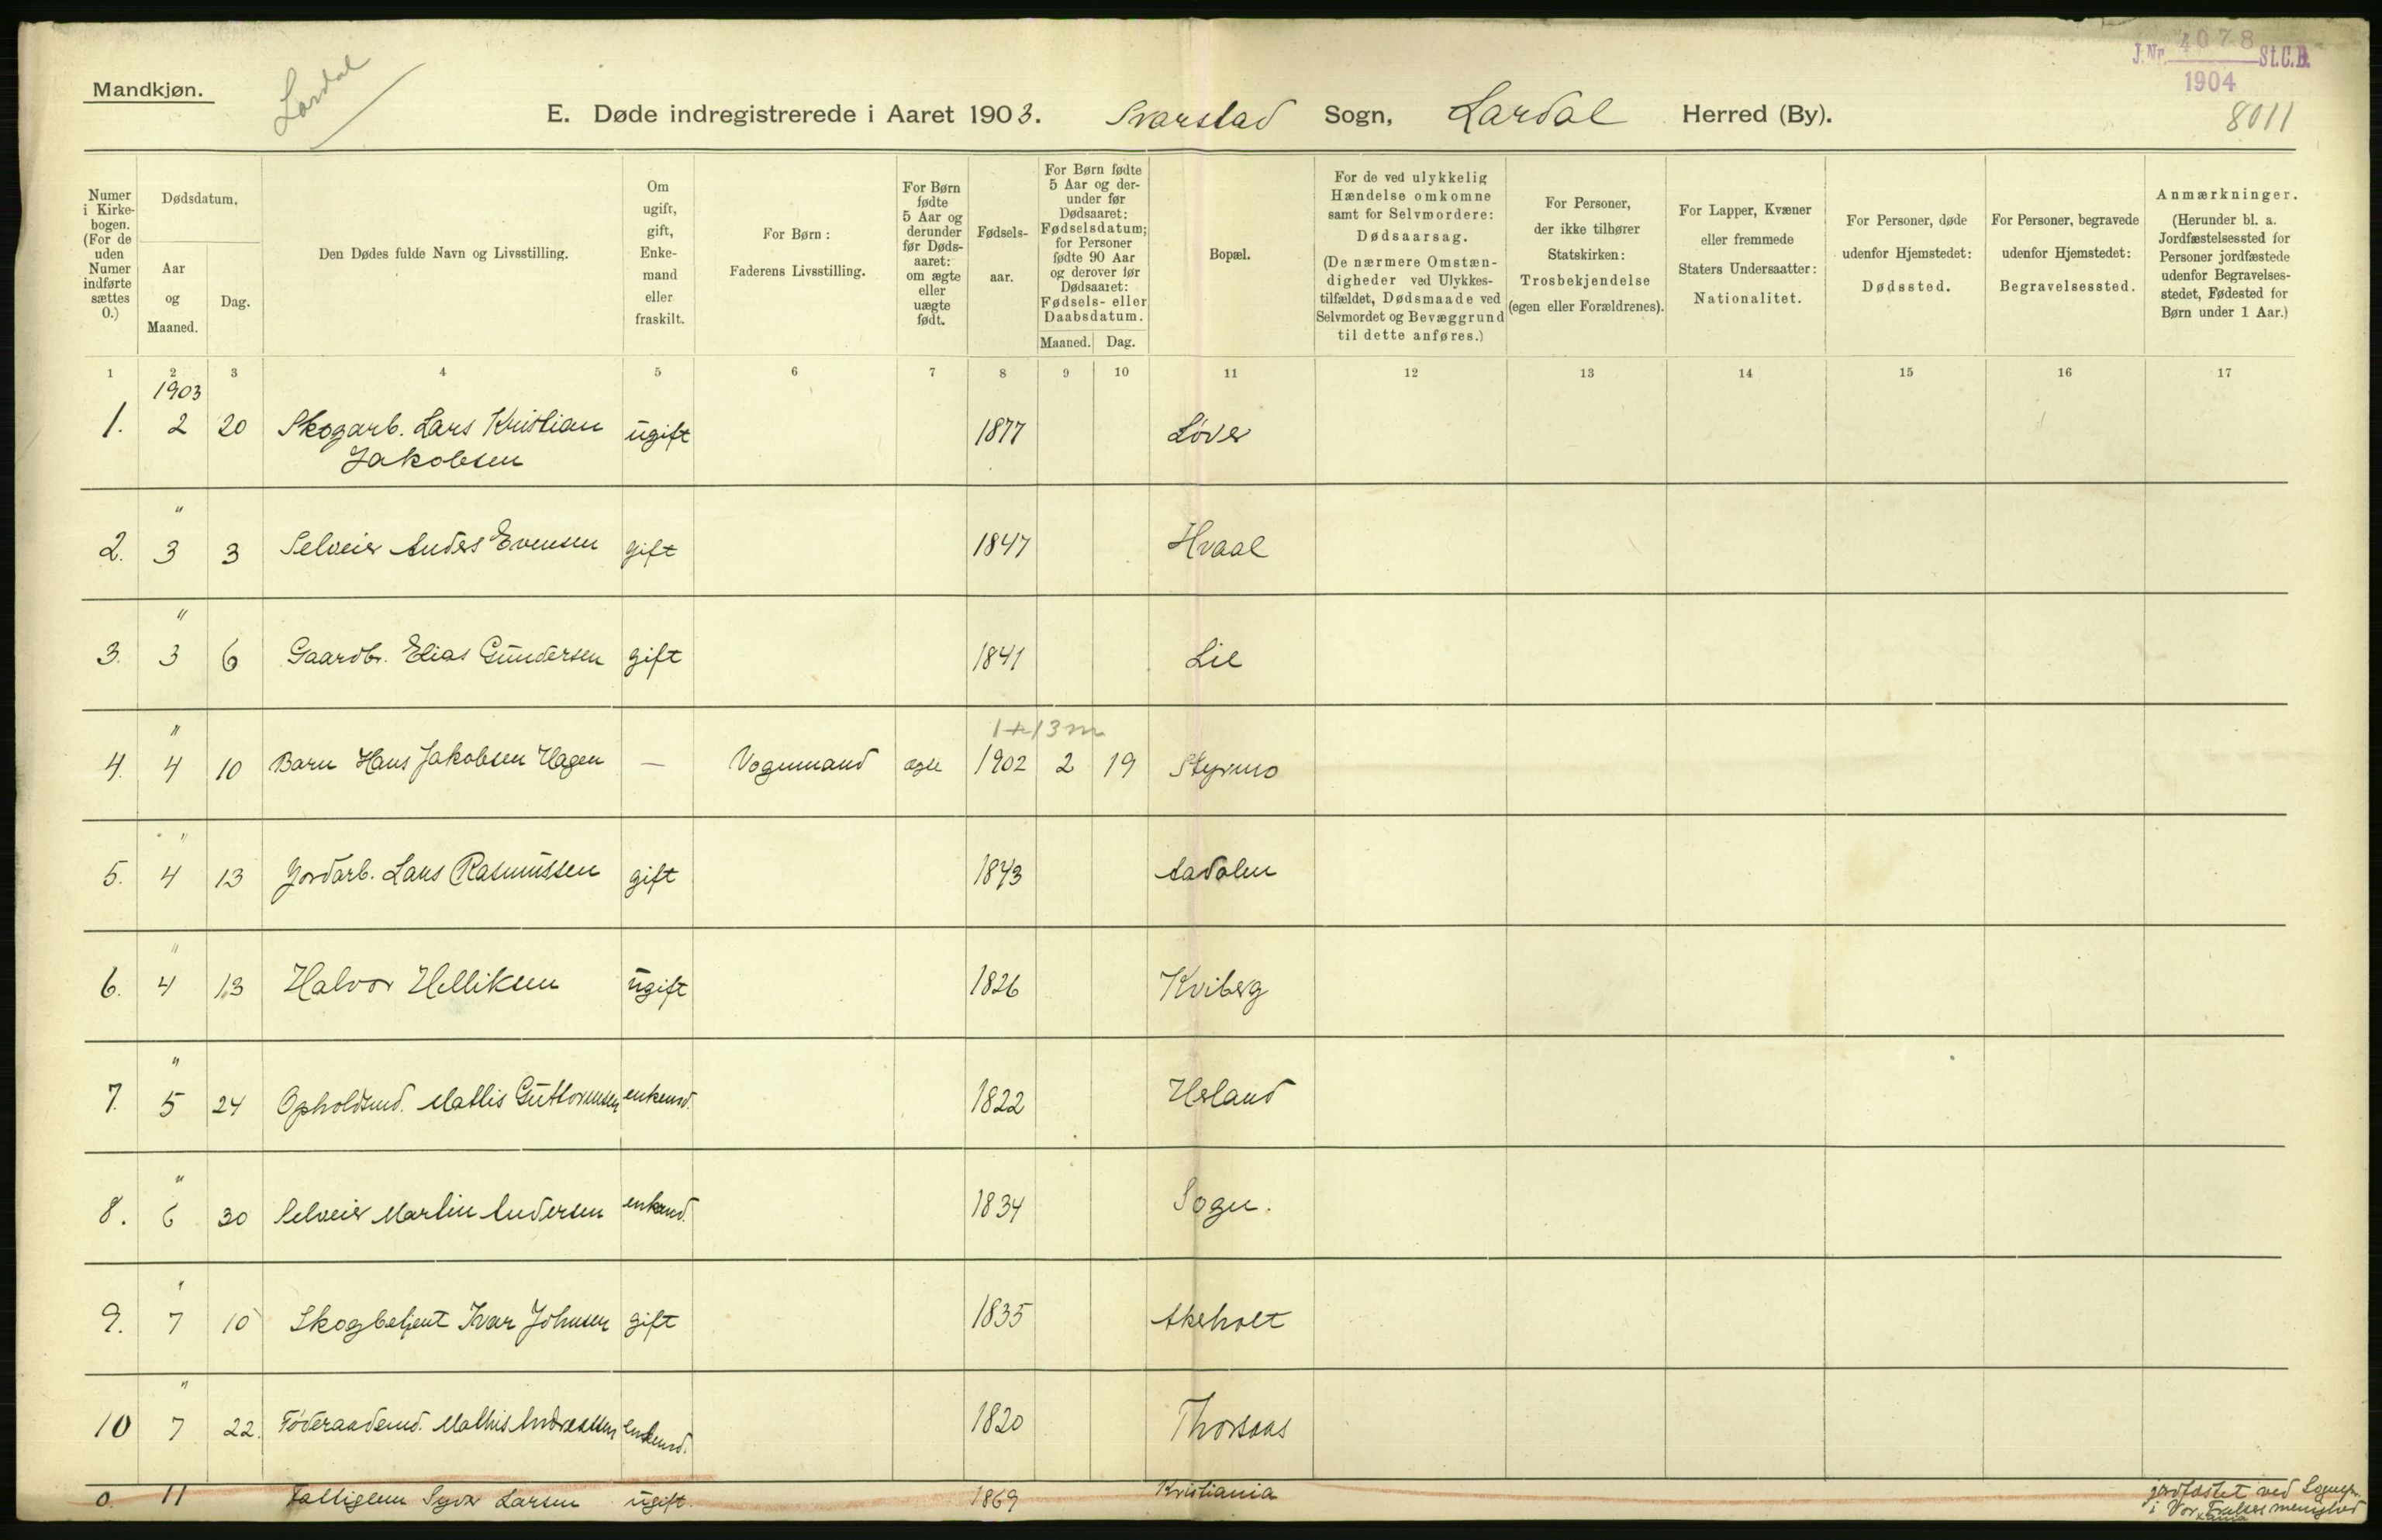 Mandkjøn.
Lardal
J.Nr. 4078 St.C.B.
1904
8011
E. Døde indregistrerede i Aaret 1903. Svarstad Sogn, Lardal Herred (By).
Numer i Kirkebogen. (For de uden Numer indførte sættes 0.)
Dødsdatum.
Aar og Maaned.
Dag.
Den Dødes fulde Navn og Livsstilling.
Om ugift, gift, Enkemand eller fraskilt.
For Børn: Faderens Livsstilling.
For Børn fødte 5 Aar og derunder før Dødsaaret: om ægte eller uægte født.
Fødselsaar.
For Børn fødte 5 Aar og derunder før Dødsaaret: Fødselsdatum; for Personer fødte 90 Aar og derover før Dødsaaret: Fødsels- eller Daabsdatum.
Maaned. Dag.
Bopæl.
For de ved ulykkelig Hændelse omkomne samt for Selvmordere: Dødsaarsag. (De nærmere Omstændigheder ved Ulykkestilfældet, Dødsmaade ved Selvmordet og Bevæggrund til dette anføres.)
For Personer, der ikke tilhører Statskirken: Trosbekjendelse (egen eller Forældrenes).
For Lapper, Kvæner eller fremmede Staters Undersaatter: Nationalitet.
For Personer, døde udenfor Hjemstedet: Dødssted.
For Personer, begravede udenfor Hjemstedet: Begravelsessted.
Anmærkninger. (Herunder bl. a. Jordfæstelsessted for Personer jordfæstede udenfor Begravelsesstedet, Fødested for Børn under 1 Aar.)
1 2 3 4 5 6 7 8 9 10 11 12 13 14 15 16 17
1903
1. 2 20 Skogarb. Lars Kristian ugift 1877 Løver
Jakobsen
"
2. 3 3 Selveier Anders Evensen gift 1847 Hvaal
"
3. 3 6 Gaardbr. Elias Gundersen gift 1841 Lie
" 1+13m
4. 4 10 Barn Hans Jakobsen Hagen — Vognmand ægte 1902 2 19 Styrmo
"
5. 4 13 Jordarb. Lars Rasmussen gift 1843 Aadalen
"
6. 4 13 Halvor Helliksen ugift 1826 Kviberg
"
7. 5 24 Opholdsmd. Mathis Guttormsen enkemd. 1822 Heland
"
8. 6 30 Selveier Martin Andersen enkemd. 1834 Sogn.
"
9. 7 10 Skogbetjent Ivar Johnsen gift 1835 Akerholt
"
10 7 22. Føderaadsmd. Mathis Andreassen enkemd. 1820 Thorsaas
0. 11 Fattiglem Syver Larsen ugift. 1869 Kristiania jordfæstet ved Sognepr.
i Vor Frelsers menighed
Xania